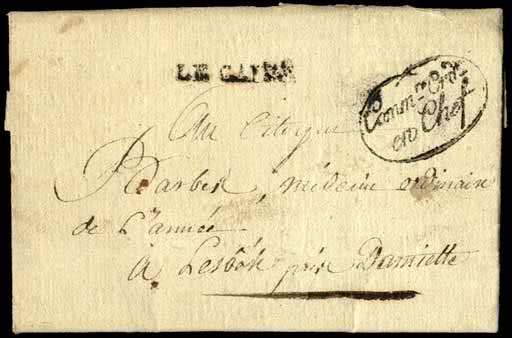 LE CAIRE
Comm.re Ord.r
en Chef
Au Citoyen
Barbes, médecin ordinaire
de L'armée
à Lesbéh près Damiette